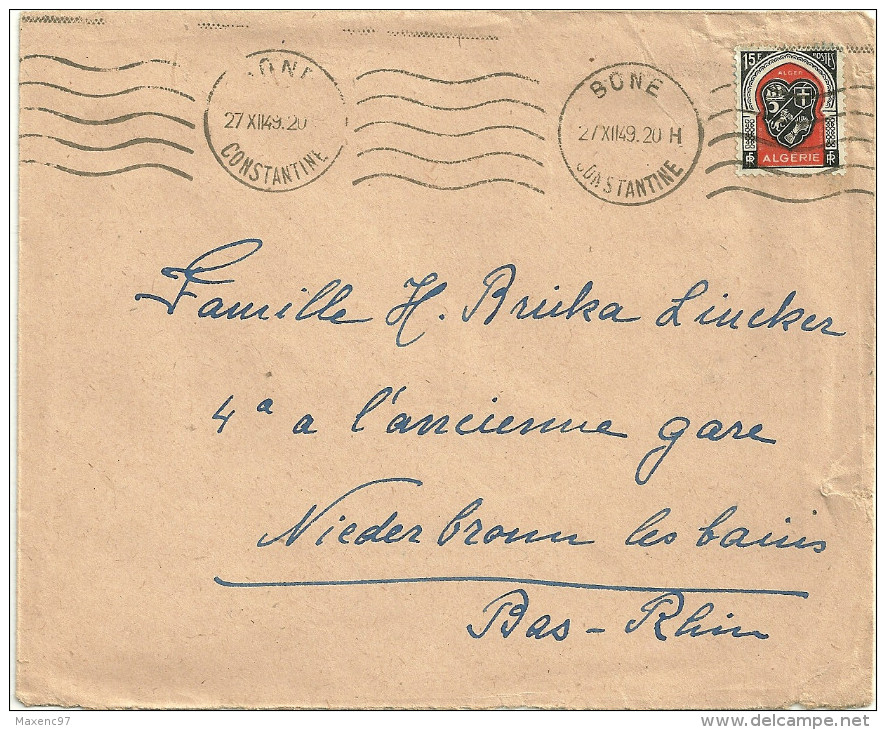 BONE
27 XII49.20
CONSTANTINE
BONE
27XII49.20 H
CONSTANTINE
15F POSTES
ALGER
ALGERIE
RF RF
Famille H. Bruka Lincker
4a a l'ancienne gare
Niederbronn les bains
Bas-Rhin
Maxenc97
delcampe.net